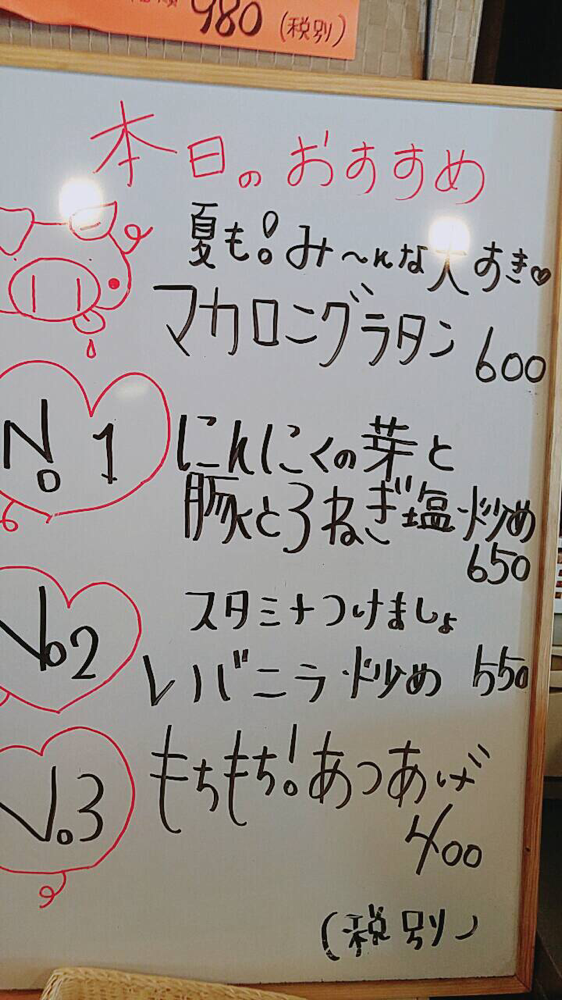 980 (税別)
本日のおすすめ
夏も!み〜んな大すき♡
マカロニグラタン 600
No1 にんにくの芽と
豚とろねぎ塩炒め
650
スタミナつけましょ
No2 レバニラ炒め 550
No.3 もちもち!あつあげ
400
(税別)